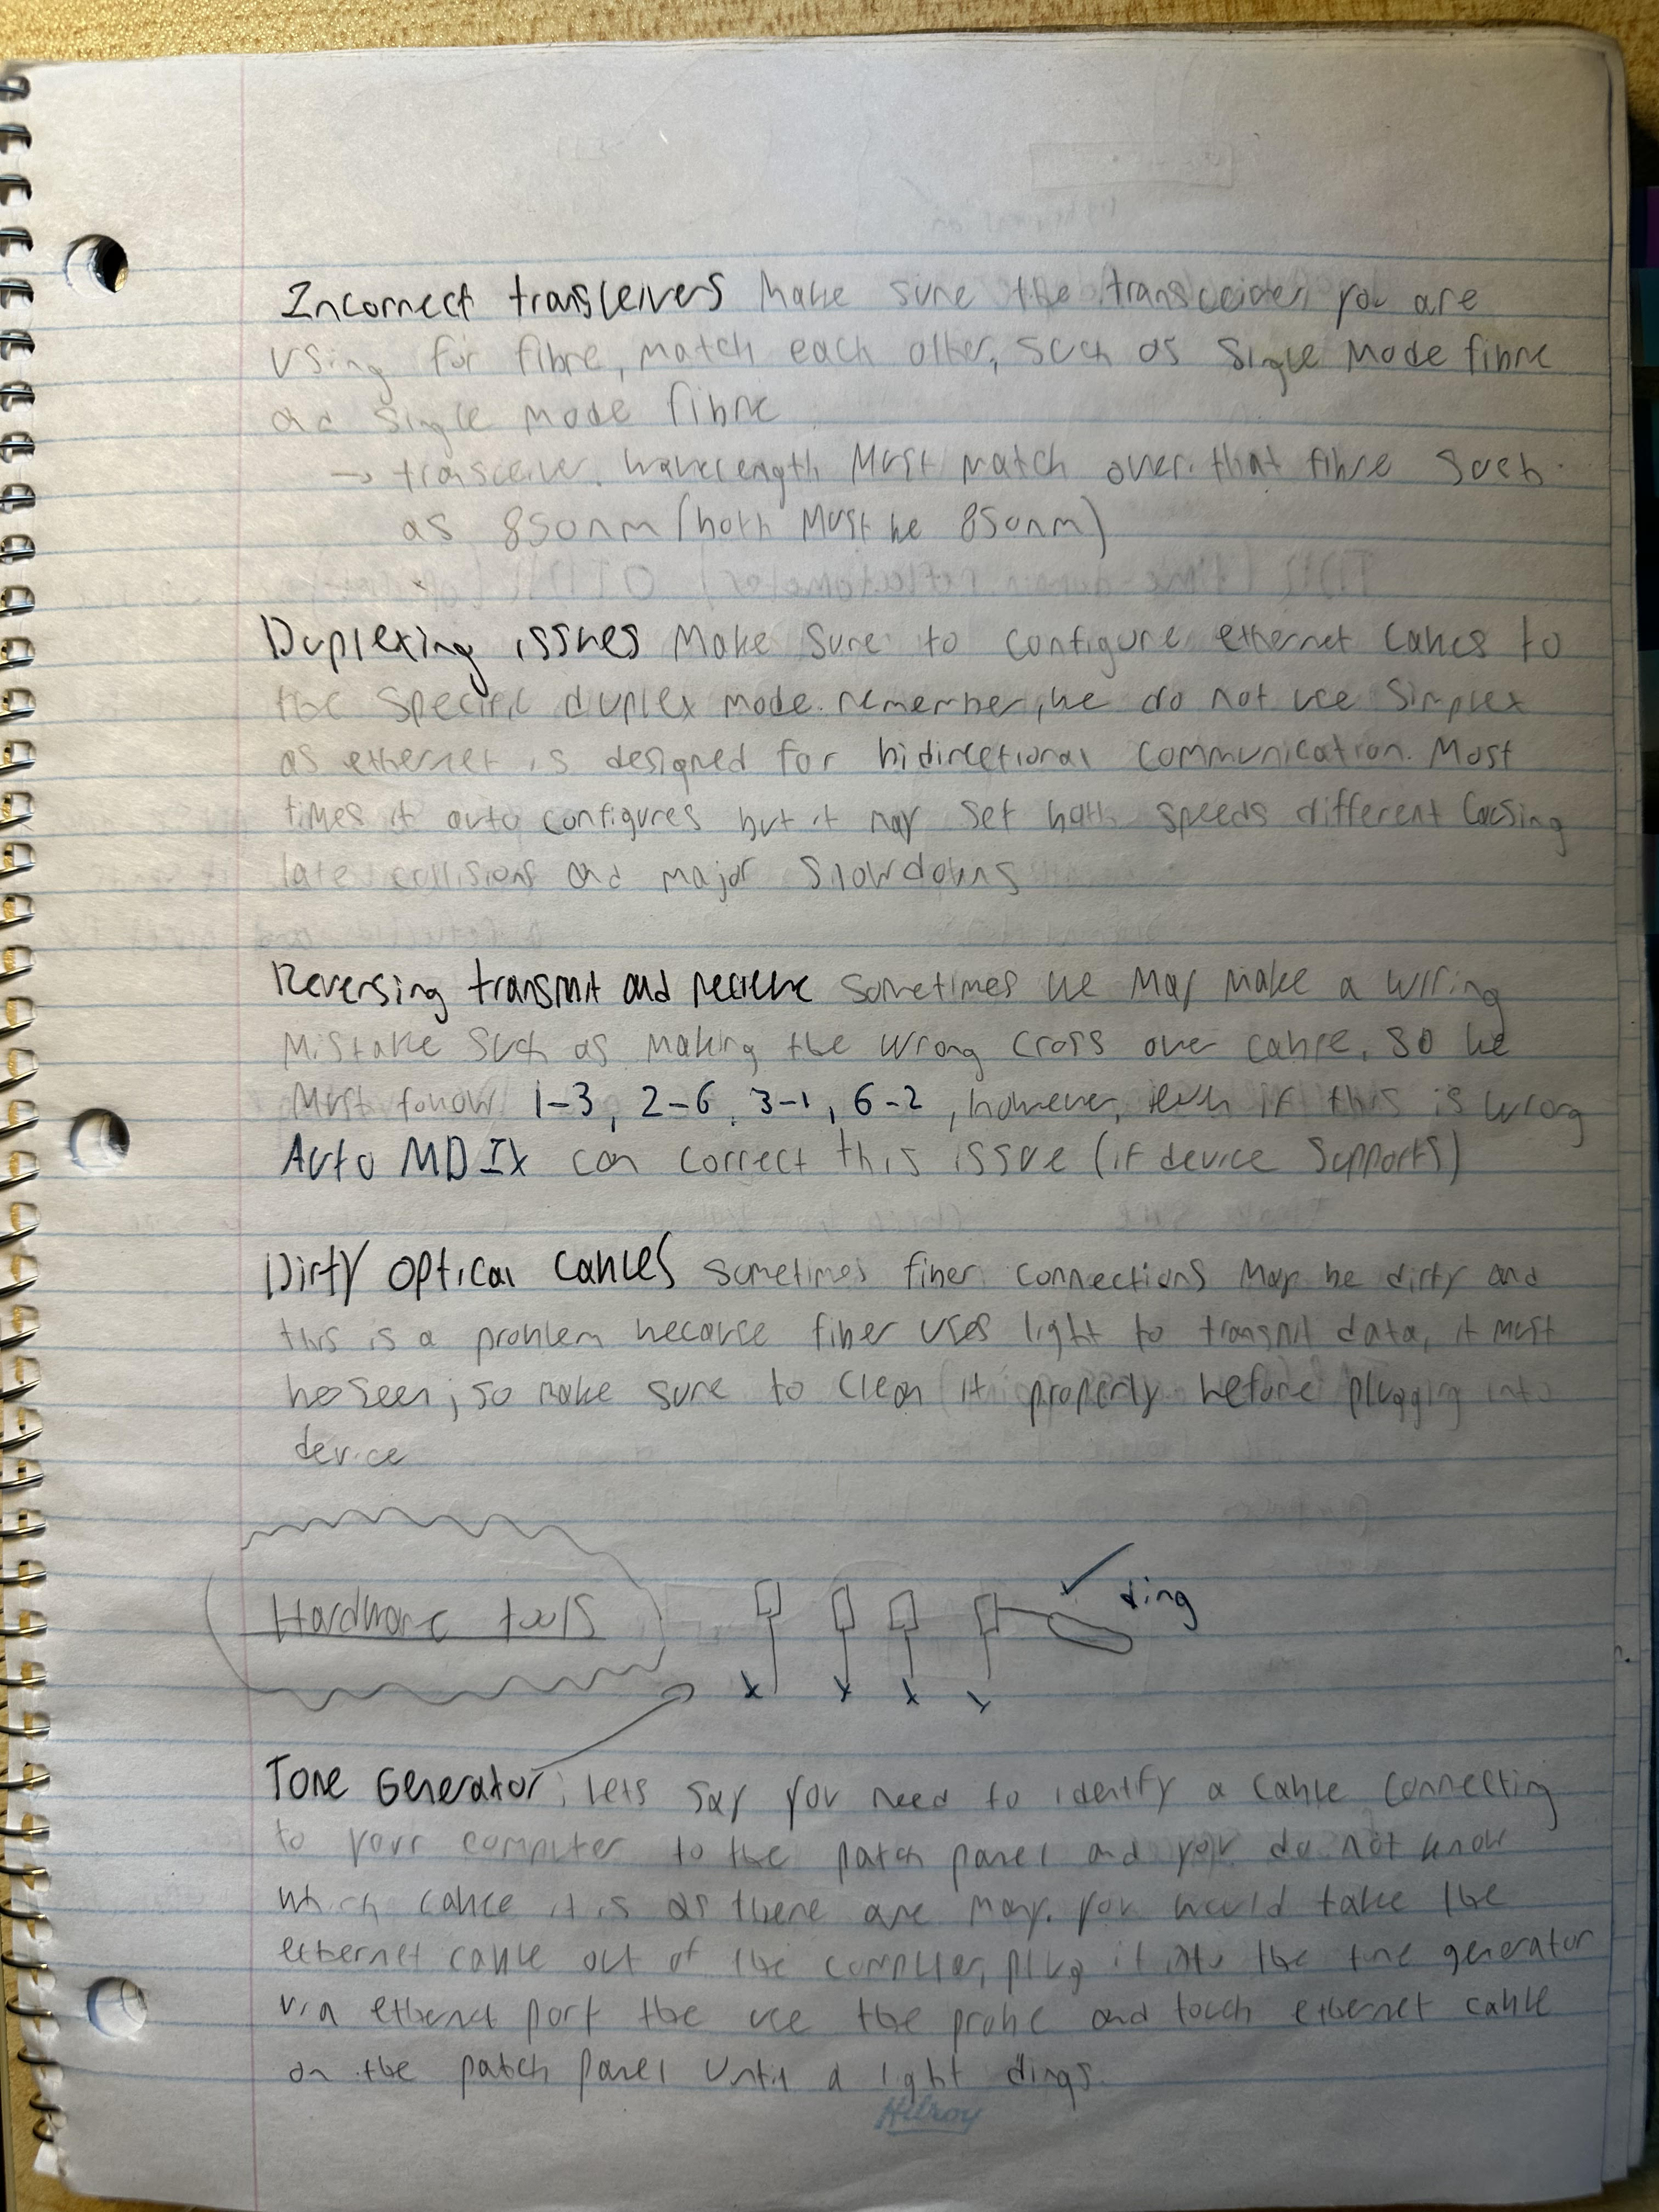 Incorrect transceivers Make sure the transceider you are
using for fibre, match each other, such as Single Mode fibre
and single mode fibre
→ transceiver wavelength Must match over that fibre such
as 850nm (both Must be 850nm)
Duplexing issues Make sure to configure ethernet cables to
the specific duplex mode. remember, we do not use simplex
as ethernet is designed for bidirectional communication. Most
times it auto configures but it may set both speeds different causing
late collisions and major slowdowns
Reversing transmit and recieve sometimes we May make a wiring
Mistake such as making the wrong cross over cable, so we
Must follow 1-3, 2-6, 3-1, 6-2, however, even if this is wrong
Auto MDIX can correct this issue (if device supports)
Dirty optical cables sometimes fiber connections May be dirty and
this is a problem because fiber uses light to transmit data, it must
be seen, so make sure to clean it properly before plugging into
device
Hardware tools
ding
Tone Generator: lets say you need to identify a cable connecting
to your computer to the patch panel and you do not know
which cable it is as there are many. you would take the
ethernet cable out of the computer, plug it into the tone generator
via ethernet port the use the probe and touch ethernet cable
on the patch panel until a light dings.
Hilroy